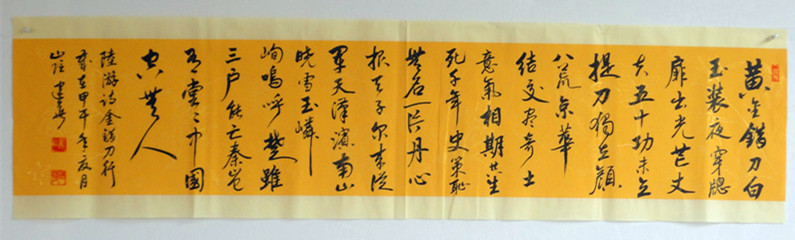 黄金錯刀白
玉裝夜穿牕
扉出光芒丈
夫五十功未立
提刀獨立顧
八荒京華
結交盡奇士
意氣相期共生
死千年史策恥
無名一片丹心
报天子尔来從
軍天漢濱南山
曉雪玉嶙
峋嗚呼楚雖
三户能亡秦豈
有堂々中國
空無人
陸游诗金錯刀行
歲在甲午年夏月